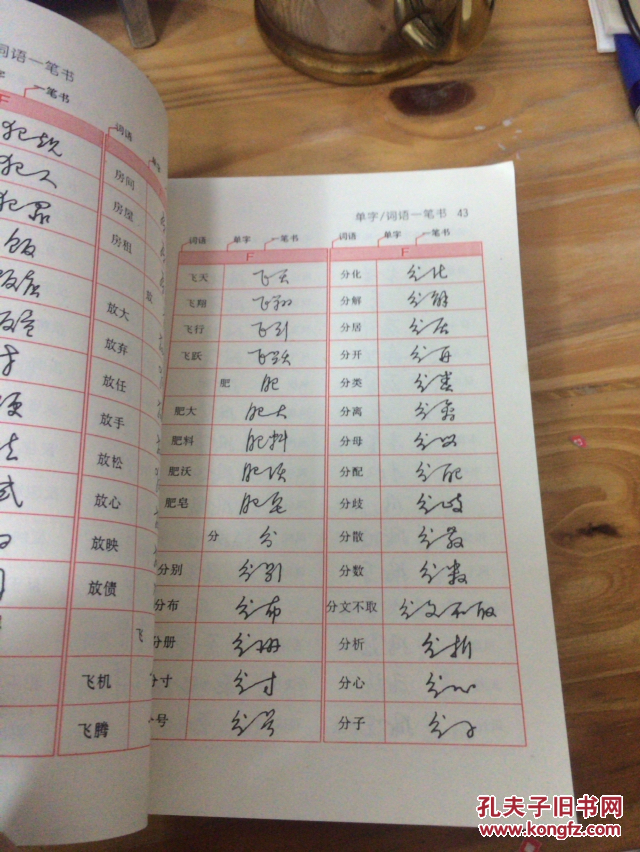 词语一笔书
一笔书
F
犯规
犯人
犯罪
饭
词语 单字
房间
房屋
房租
放
放大
放弃
放任
放手
放松
放心
放映
放债
飞
飞机
飞腾
单字/词语一笔书 43
词语 单字 一笔书 词语 单字 一笔书
F F
飞天 飞天 分化 分化
飞翔 飞翔 分解 分解
飞行 飞行 分居 分居
飞跃 飞跃 分开 分开
肥 肥 分类 分类
肥大 肥大 分离 分离
肥料 肥料 分母 分母
肥沃 肥沃 分配 分配
肥皂 肥皂 分歧 分歧
分 分 分散 分散
分别 分别 分数 分数
分布 分布 分文不取 分文不取
分册 分册 分析 分析
分寸 分寸 分心 分心
分号 分号 分子 分子
孔夫子旧书网
www.kongfz.com